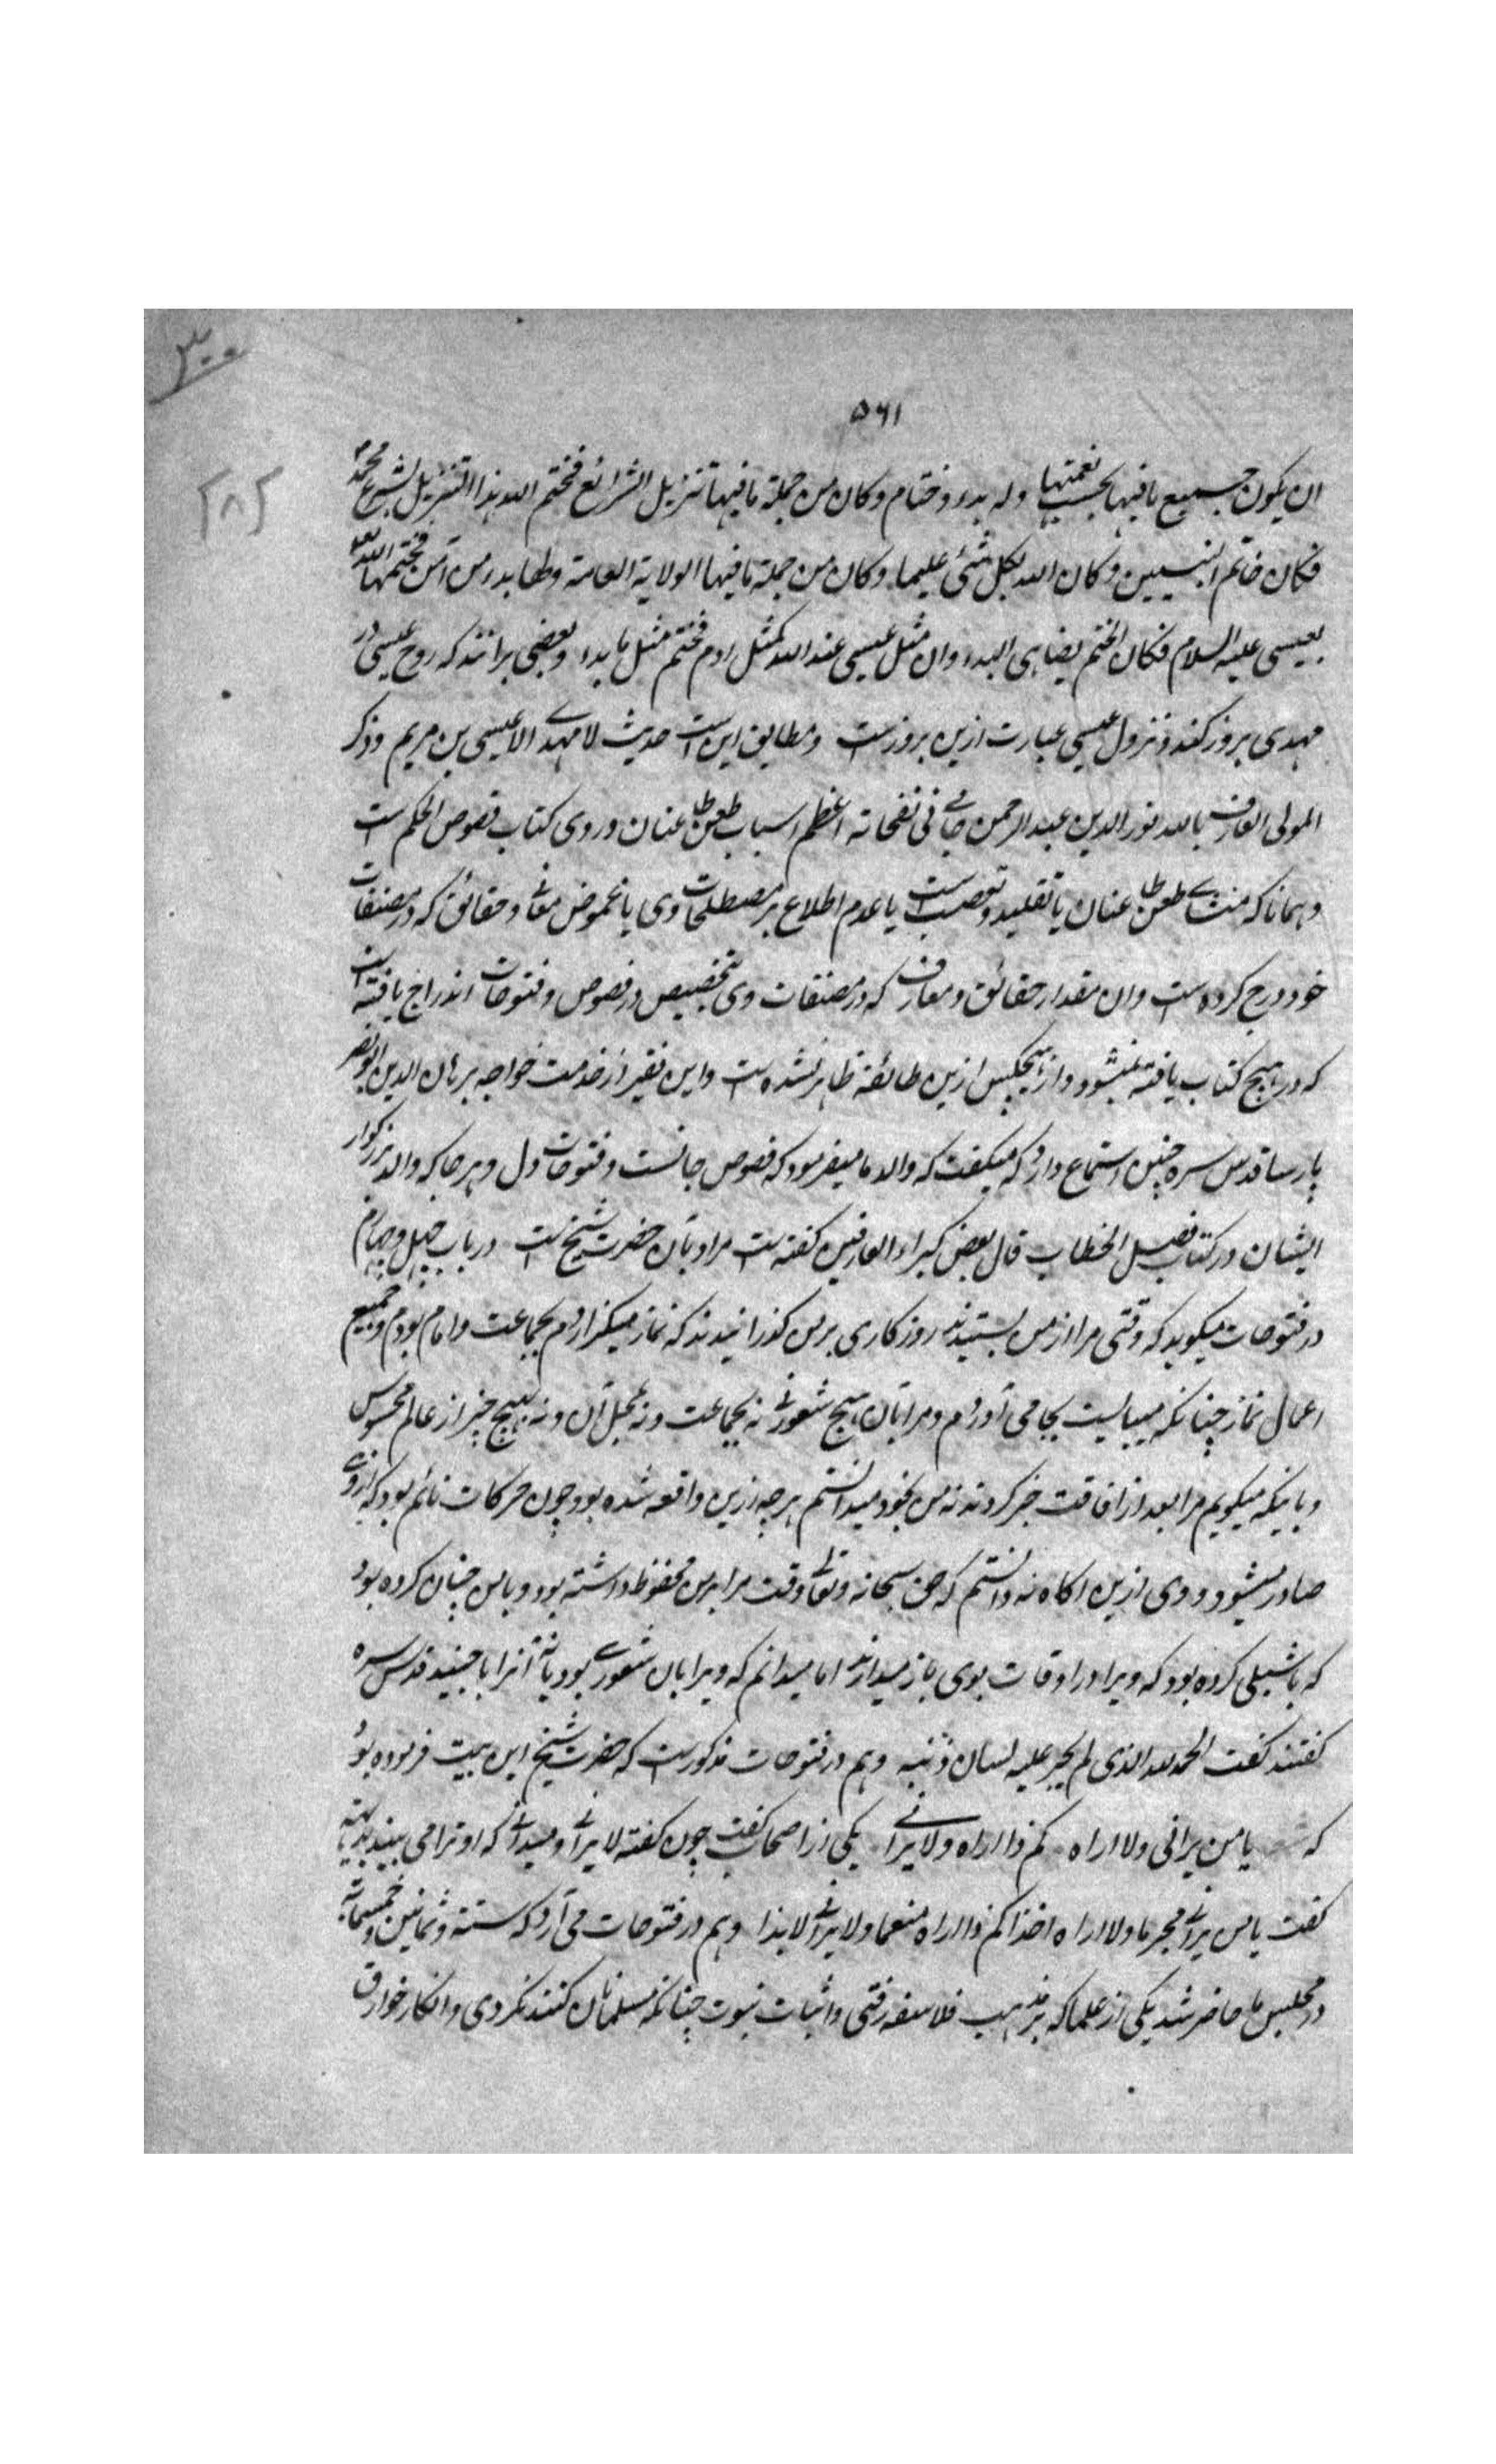 ۳۰۰
۵۶۱
[۸]
ان یکون جمیع ما فیها بحسب نعمتها وله بدء وختام وکان من جملة ما فیها تنزیل الشرائع فختم الله هذا التنزیل بشرع محمد
فکان خاتم النبیین وکان الله بکل شئ علیما وکان من جملة ما فیها الولایة العامة ولها بدء من آدم فختمها الله
بعیسی علیه السلام فکان الختم یضاهی البدء وان مثل عیسی عند الله کمثل ادم فختم مثل ما بدء وبعضی برانند که روح عیسی در
مهدی بروز کند و نزول عیسی عبارت ازین بروزست ومطابق این است حدیث لا مهدے الا عیسی بن مریم وذکر
المولی العارف بالله نور الدین عبد الرحمن جامے فی نفحاته اعظم اسباب طعن طاعنان در وی کتاب فصوص الحکم است
وهمانا که منشاے طعن طاعنان یا تقلید وتعصب است یا عدم اطلاع بر مصطلحات وی یا غموض معانے وحقائق که در مصنفات
خود درج کرده است وان مقدار حقائق ومعارف که در مصنفات وی بتخصیص در فصوص وفتوحات اندراج یافته است
که در هیچ کتاب یافته نمیشود واز هیچکس ازین طائفه ظاهر نشده است واین فقیر از خدمت خواجه برهان الدین ابو نصر
پارسا قدس سره چنین استماع دارد که میگفت که والد ما میفرمود که فصوص جانست وفتوحات دل وهرجا که والد بزرگوار
ایشان در کتاب فصل الخطاب قال بعض کبراء العارفین گفته است مراد بآن حضرت شیخ است در باب چهل وچهارم
در فتوحات میگوید که وقتی مرا از من بستدند روزگاری بر من گذرانیدند که نماز میگزاردم بجماعت وامام بودم وجمیع
اعمال نماز چنانکه میبایست بجا می آوردم ومرا بآن هیچ شعورے نه بجماعت ونه بمحل آن ونه بهیچ چیز از عالم محسوس
وباینکه میگویم مرا بعد از افاقت خبر کردند نه من بخود میدانستم هرچه از من واقعه شده بود چون حرکات نائم بود که از وے
صادر میشود ووی ازین اگاه نه دانستم که حق سبحانه وتعالے وقت مرا بر من محفوظ داشته بود وبا من چنان کرده بود
که با شبلی کرده بود که ویرا در اوقات بوی باز میدادند اما نمیدانم که ویرا بآن شعورے بود یا نه آنرا با جنید قدس سره
گفتند گفت الحمد لله الذی لم یجر علیه لسان ذنب وهم در فتوحات مذکورست که حضرت شیخ این بیت فرموده بود
که یا من یرانی ولا اراه کم ذا اراه ولا یرانے یکی از اصحاب گفت چون گفته لا یرانے ومیدانے که او ترا می بیند
گفت یا من یرانے مجرما ولا اراه اخذا کم ذا اراه منعما ولا یرانے لایذا وهم در فتوحات می آرد که سنة ست وثمانین وخمسمائة
در مجلس ما حاضر شد یکی از علما که بر مذهب فلاسفه رفتی واثبات نبوت چنانکه مسلمانان کنند نکردی وانکار خوارق